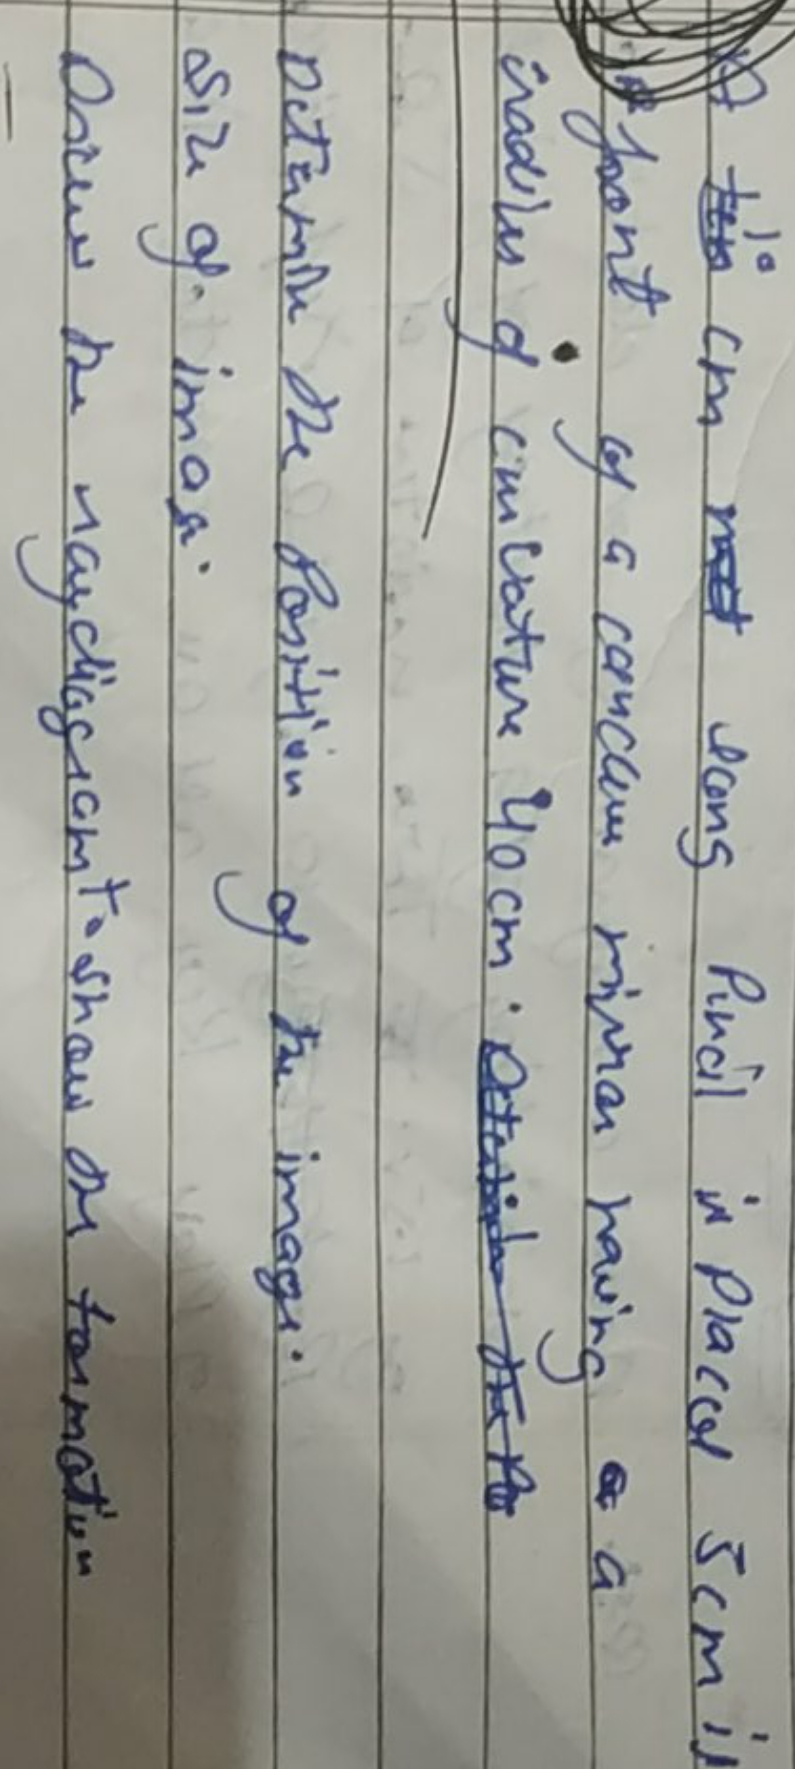 A 10 cm long Pencil is placed 5cm in
front of a concave mirror having a
radius of curvature 40cm.
Determine the Position of the image.
size of image.
Draw the ray diagram to show the formation